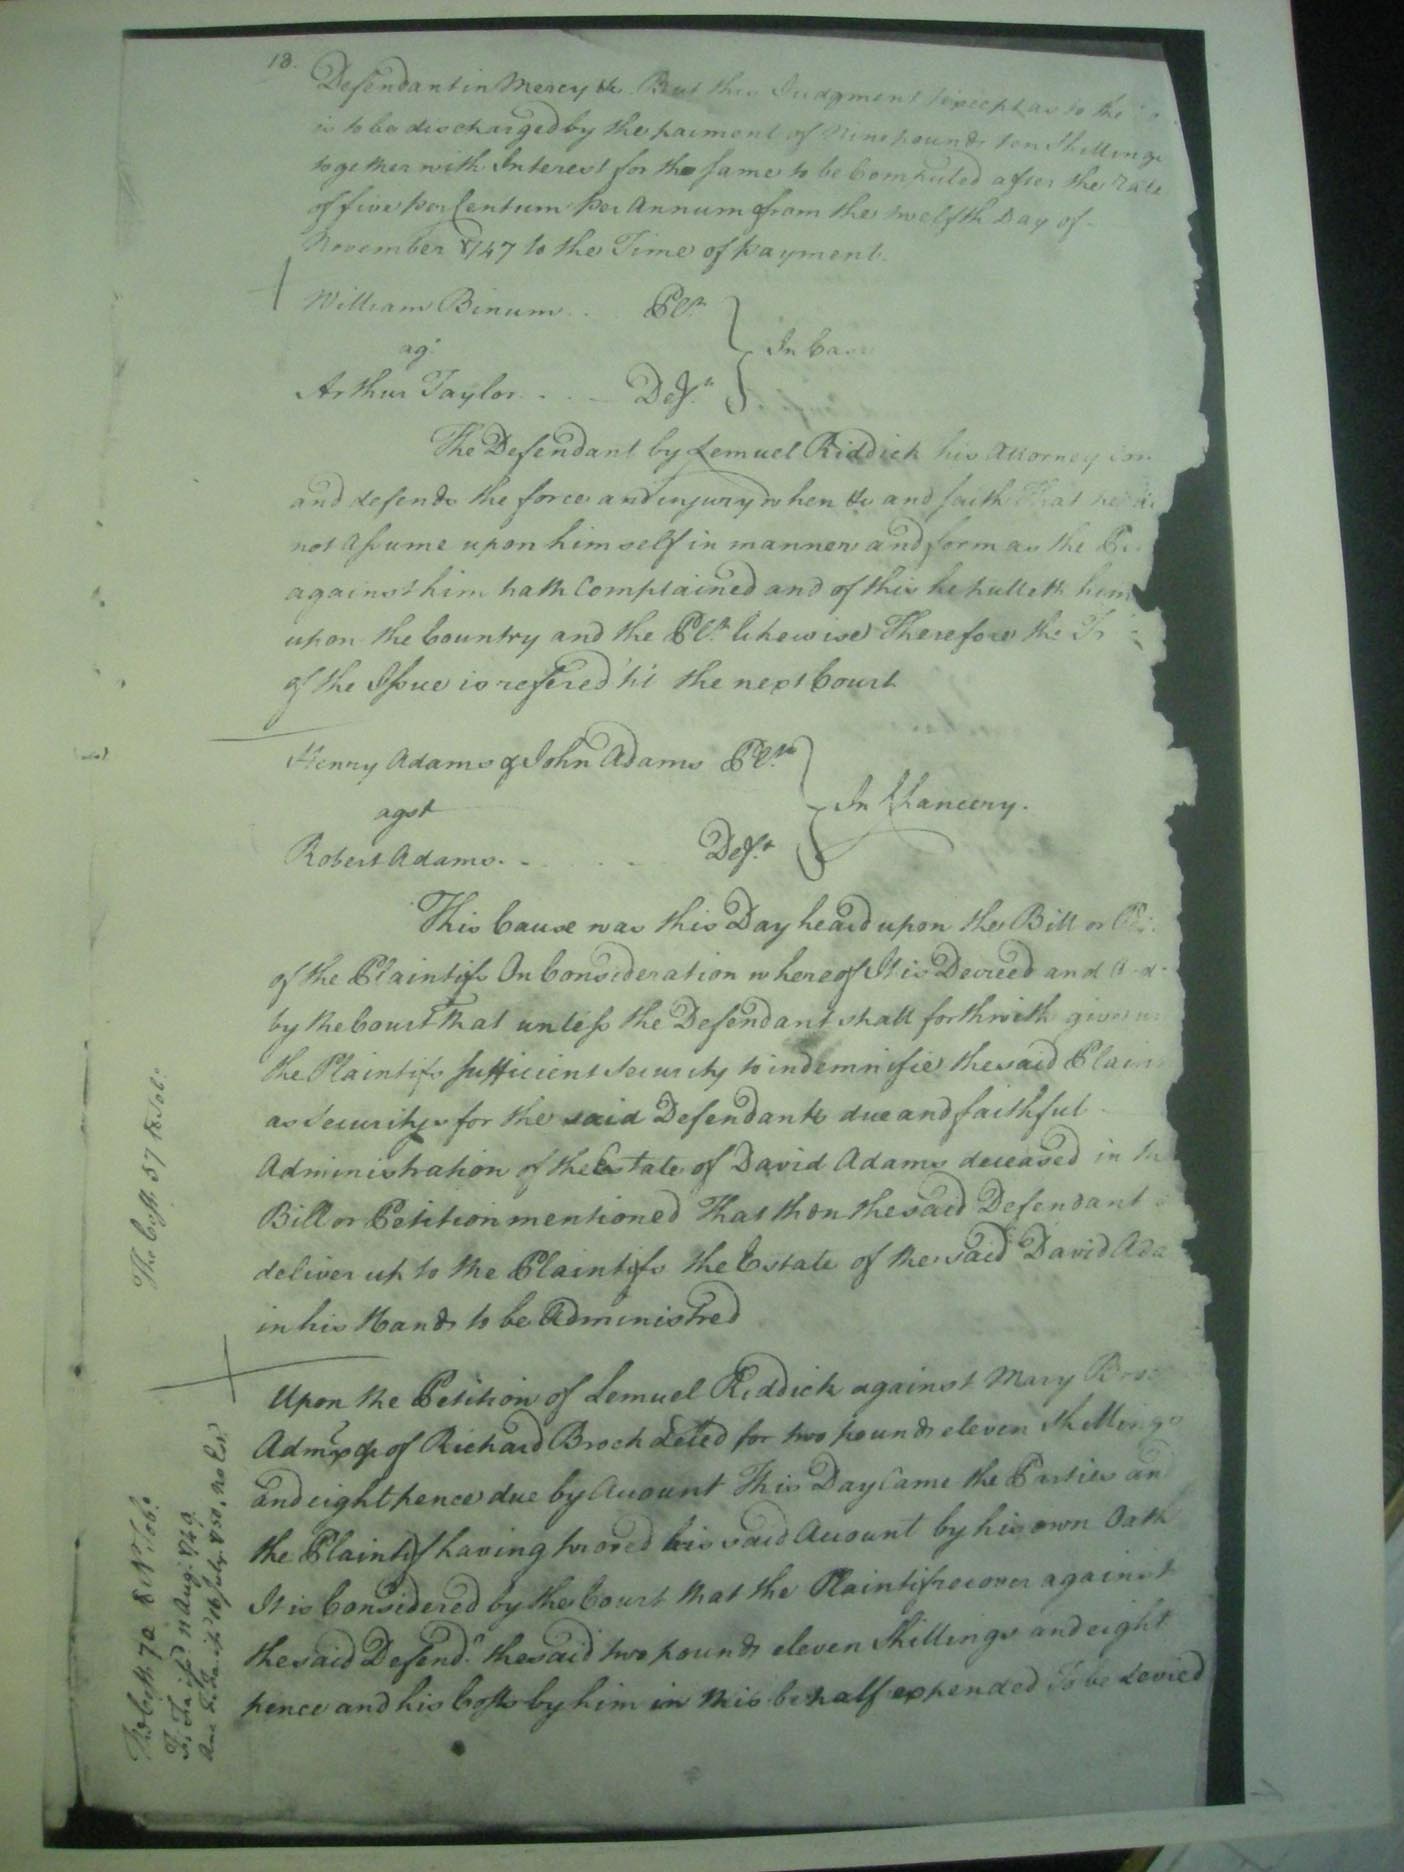 18.
Defendant in Mercy &c. But this Judgment (except as to the
is to be discharged by the paiment of Nine pounds ten Shillings
together with Interest for the same to be Computed after the Rate
of five per Centum per Annum from the twelfth Day of
November 1747 to the Time of payment.
William Binum Plt.
agt.
In Case
Arthur Taylor Deft.
The Defendant by Lemuel Riddick his Attorney
and defends the force and injury when &c and saith That he
not Assume upon himself in manner and form as the
against him hath Complained and of this he putteth him
upon the Country and the Plt. likewise Therefore the
of the Issue is refered til the next Court
Henry Adams & John Adams Plts.
agst
In Chancery.
Robert Adams Deft.
This Cause was this Day heard upon the Bill or
of the Plaintifs On Consideration whereof It is Decreed and
by the Court That unless the Defendant shall forthwith give
the Plaintifs sufficient Security to indemnifie the said Plain
as Securitys for the said Defendants due and faithful
Administration of the Estate of David Adams deceased in
Bill or Petition mentioned That then the said Defendant
deliver up to the Plaintifs the Estate of the said David Ada
in his Hands to be Administred
Upon the Petition of Lemuel Riddick against Mary
Admrx of Richard Brock deced for two pounds eleven shillings
and eight pence due by Account This Day Came the Parties and
the Plaintif having proved his said Account by his own Oath
It is Considered by the Court that the Plaintif recover against
the said Defendt. the said two pounds eleven Shillings and eight
pence and his Costs by him in this behalf expended To be Levied
The Costs 57 lb Tob:
The Costs 72 lb Tobo.
Fi. Fa issd. 11 Aug. 1749.